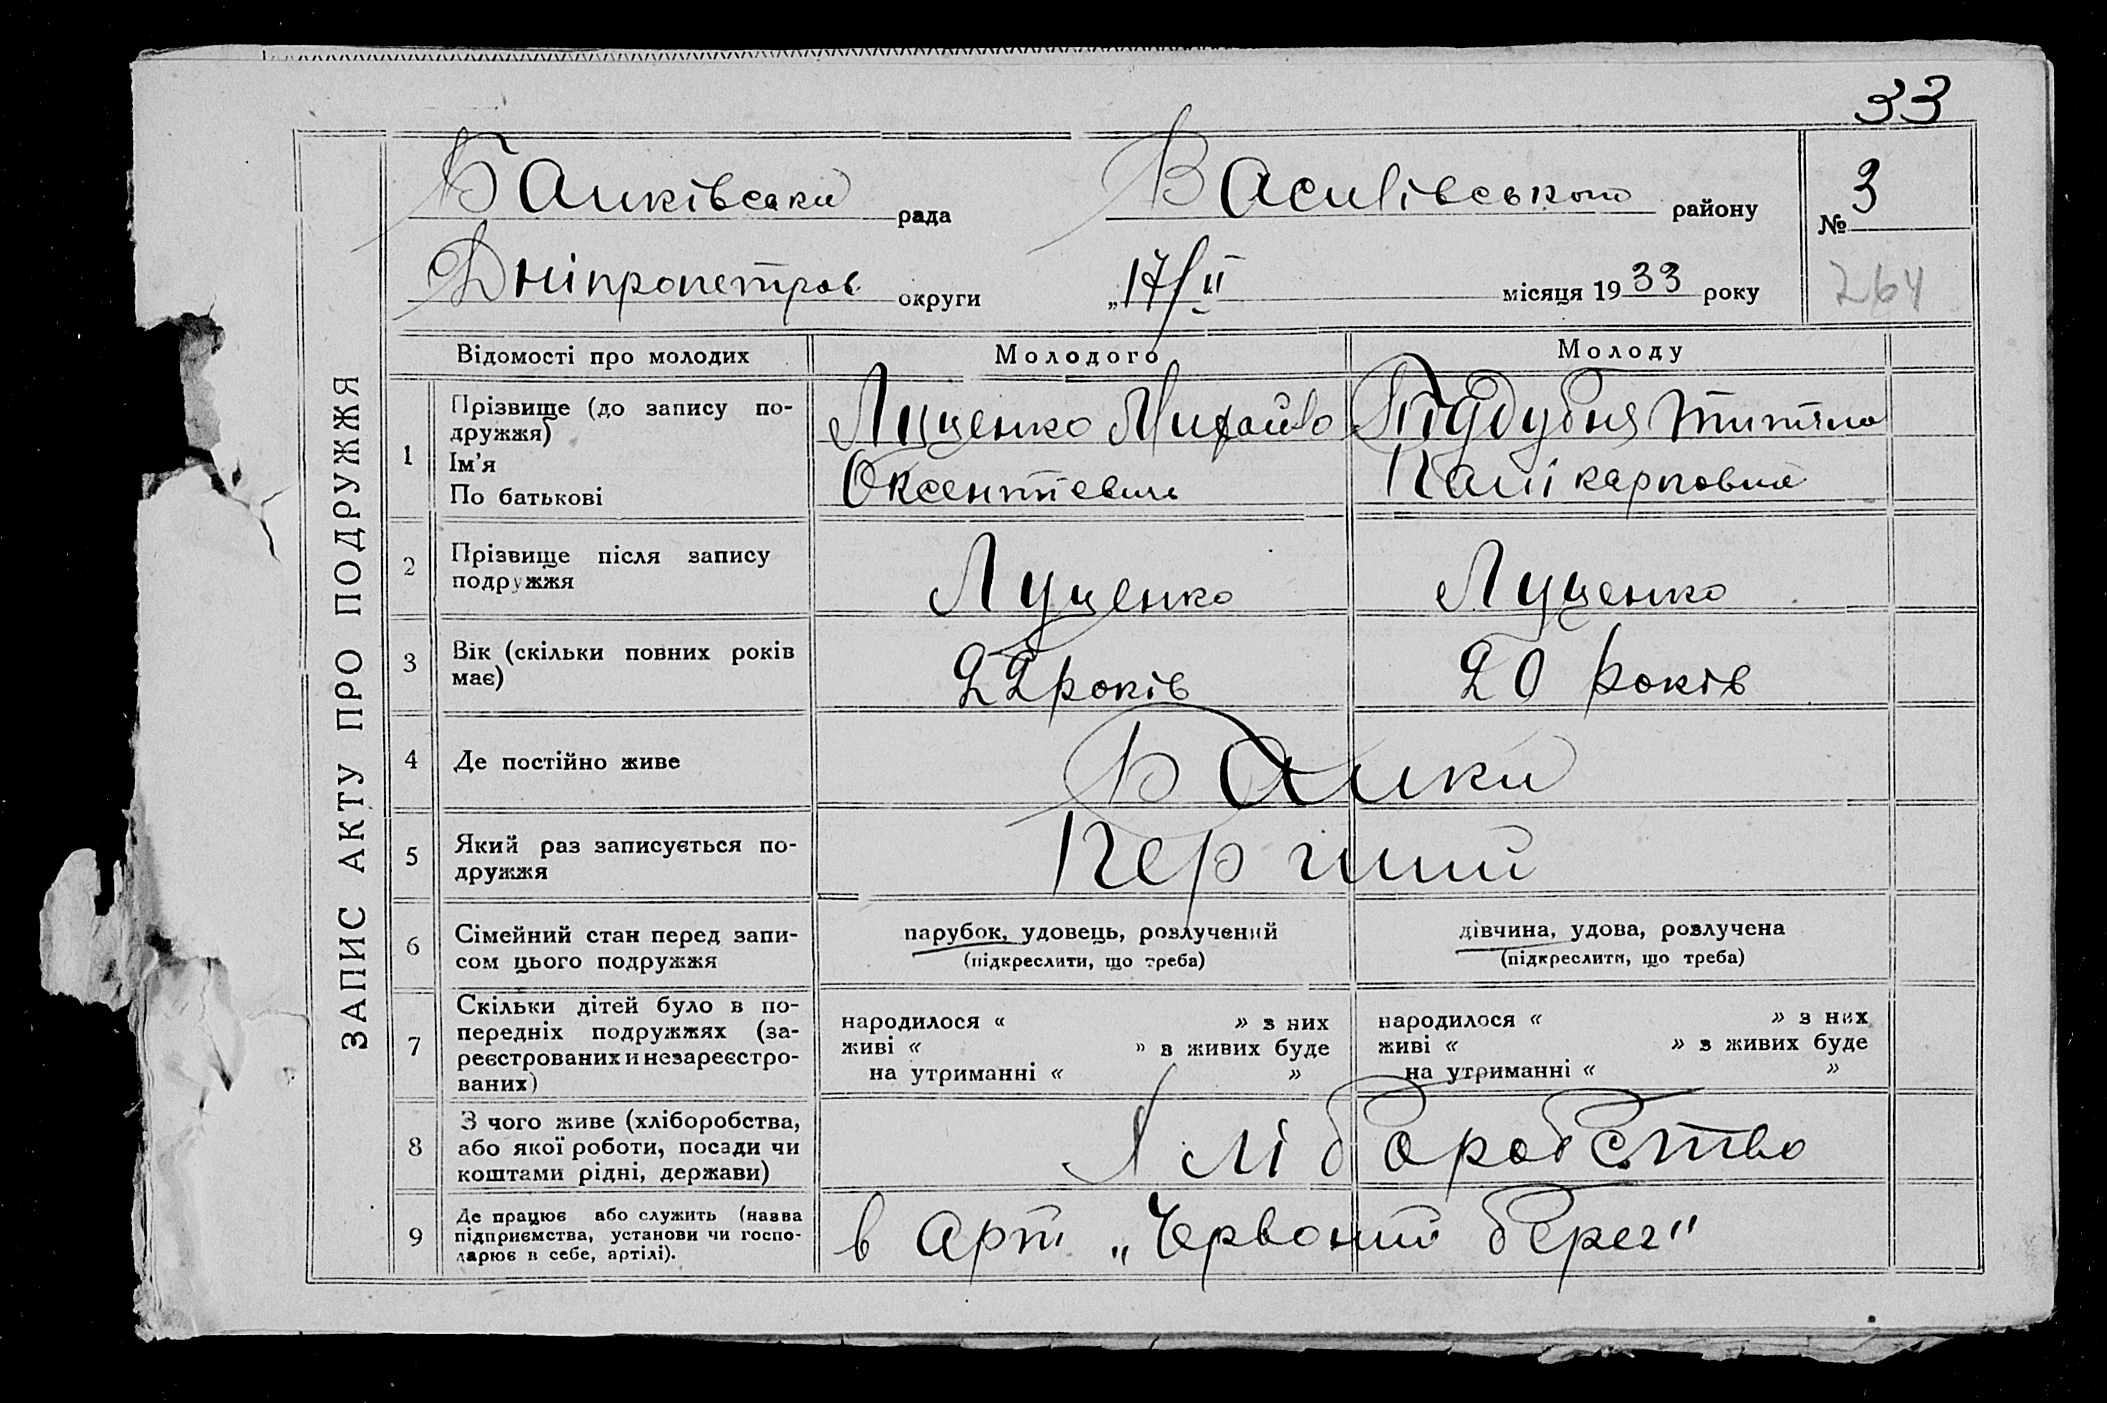 33
Балківська рада Василівського району № 3
Дніпропетров округи „17/ІІ місяця 1933 року
264
ЗАПИС АКТУ ПРО ПОДРУЖЖЯ
Відомості про молодих Молодого Молоду
1 Прізвище (до запису по-
дружжя)
Ім'я
По батькові
Луценко Михайло
Оксентіевич
Піддубня Титяна
Полікарповна
2 Прізвище після запису
подружжя
Луценко Луценко
3 Вік (скільки повних років
має)
22 років 20 років
4 Де постійно живе Балки
5 Який раз записується по-
дружжя
Перший
6 Сімейний стан перед запи-
сом цього подружжя
парубок, удовець, розлучений
(підкреслити, що треба)
дівчина, удова, розлучена
(підкреслити, що треба)
7 Скільки дітей було в по-
передніх подружжях (за-
реєстрованих и незареєстро-
ваних)
народилося « » з них
живі « » в живих буде
на утриманні « »
народилося « » з них
живі « » з живих буде
на утриманні « »
8 З чого живе (хліборобства,
або якої роботи, посади чи
коштами рідні, держави)
Хліборобство
9 Де працює або служить (назва
підприємства, установи чи госпо-
дарює в себе, артілі).
в Арт „Червоний берег"